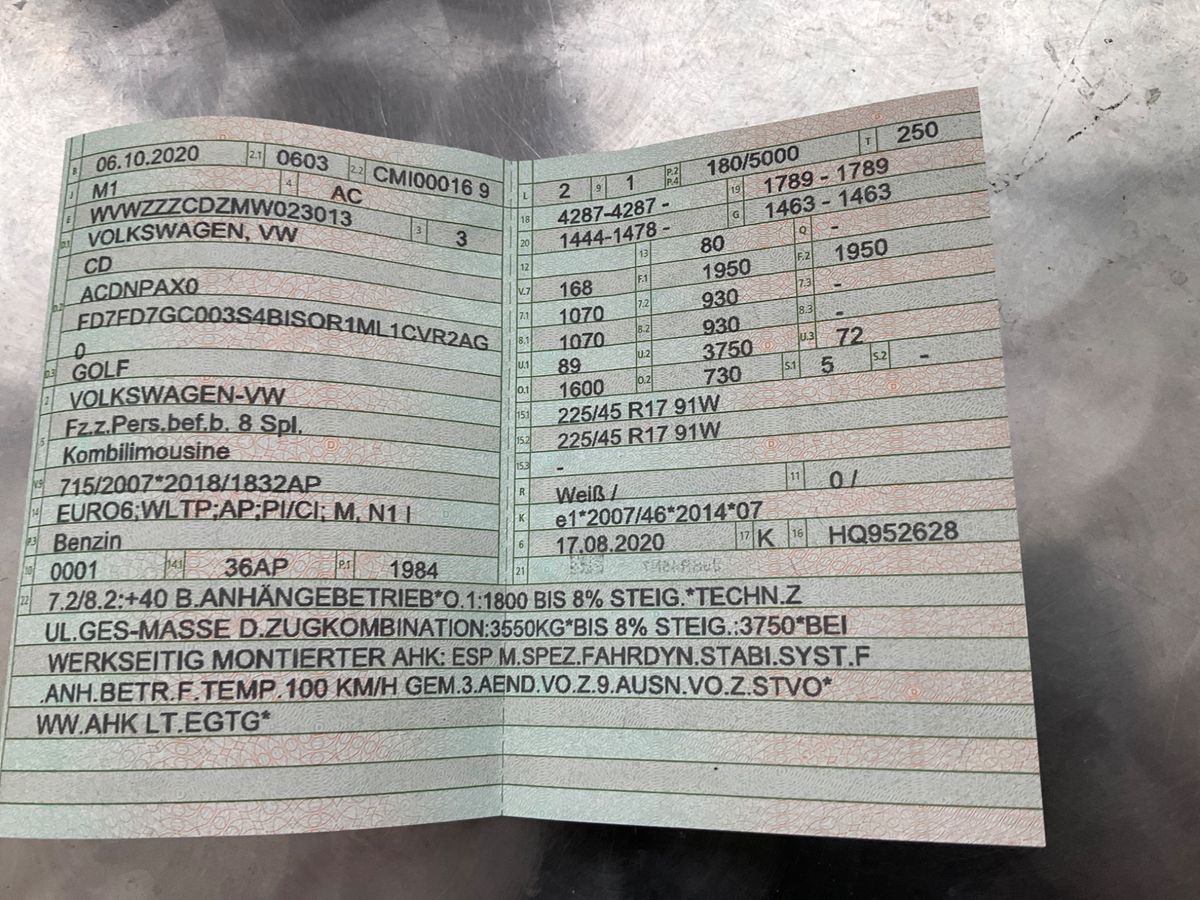 B 06.10.2020 2.1 0603 2.2 CMI00016 9
J M1 4 AC
E WVWZZZCDZMW023013 3 3
D.1 VOLKSWAGEN, VW
CD
D.2 ACDNPAX0
FD7FD7GC003S4BISOR1ML1CVR2AG
0
D.3 GOLF
2 VOLKSWAGEN-VW
Fz.z.Pers.bef.b. 8 Spl.
5 Kombilimousine
V.9 715/2007*2018/1832AP
14 EURO6;WLTP;AP;PI/CI; M, N1 I
P.3 Benzin
10 0001 14.1 36AP P.1 1984
L 2 9 1 P.2 P.4 180/5000 T 250
18 4287-4287 - 19 1789 - 1789
20 1444-1478 - G 1463 - 1463
12 13 80 Q -
V.7 168 F.1 1950 F.2 1950
7.1 1070 7.2 930 7.3 -
8.1 1070 8.2 930 8.3 -
U.1 89 U.2 3750 U.3 72
O.1 1600 O.2 730 S.1 5 S.2 -
15.1 225/45 R17 91W
15.2 225/45 R17 91W
15.3 -
R Weiß / 11 0 /
K e1*2007/46*2014*07
6 17.08.2020 17 K 16 HQ952628
21
22 7.2/8.2:+40 B.ANHÄNGEBETRIEB*O.1:1800 BIS 8% STEIG.*TECHN.Z
UL.GES-MASSE D.ZUGKOMBINATION:3550KG*BIS 8% STEIG.:3750*BEI
WERKSEITIG MONTIERTER AHK: ESP M.SPEZ.FAHRDYN.STABI.SYST.F
.ANH.BETR.F.TEMP.100 KM/H GEM.3.AEND.VO.Z.9.AUSN.VO.Z.STVO*
WW.AHK LT.EGTG*